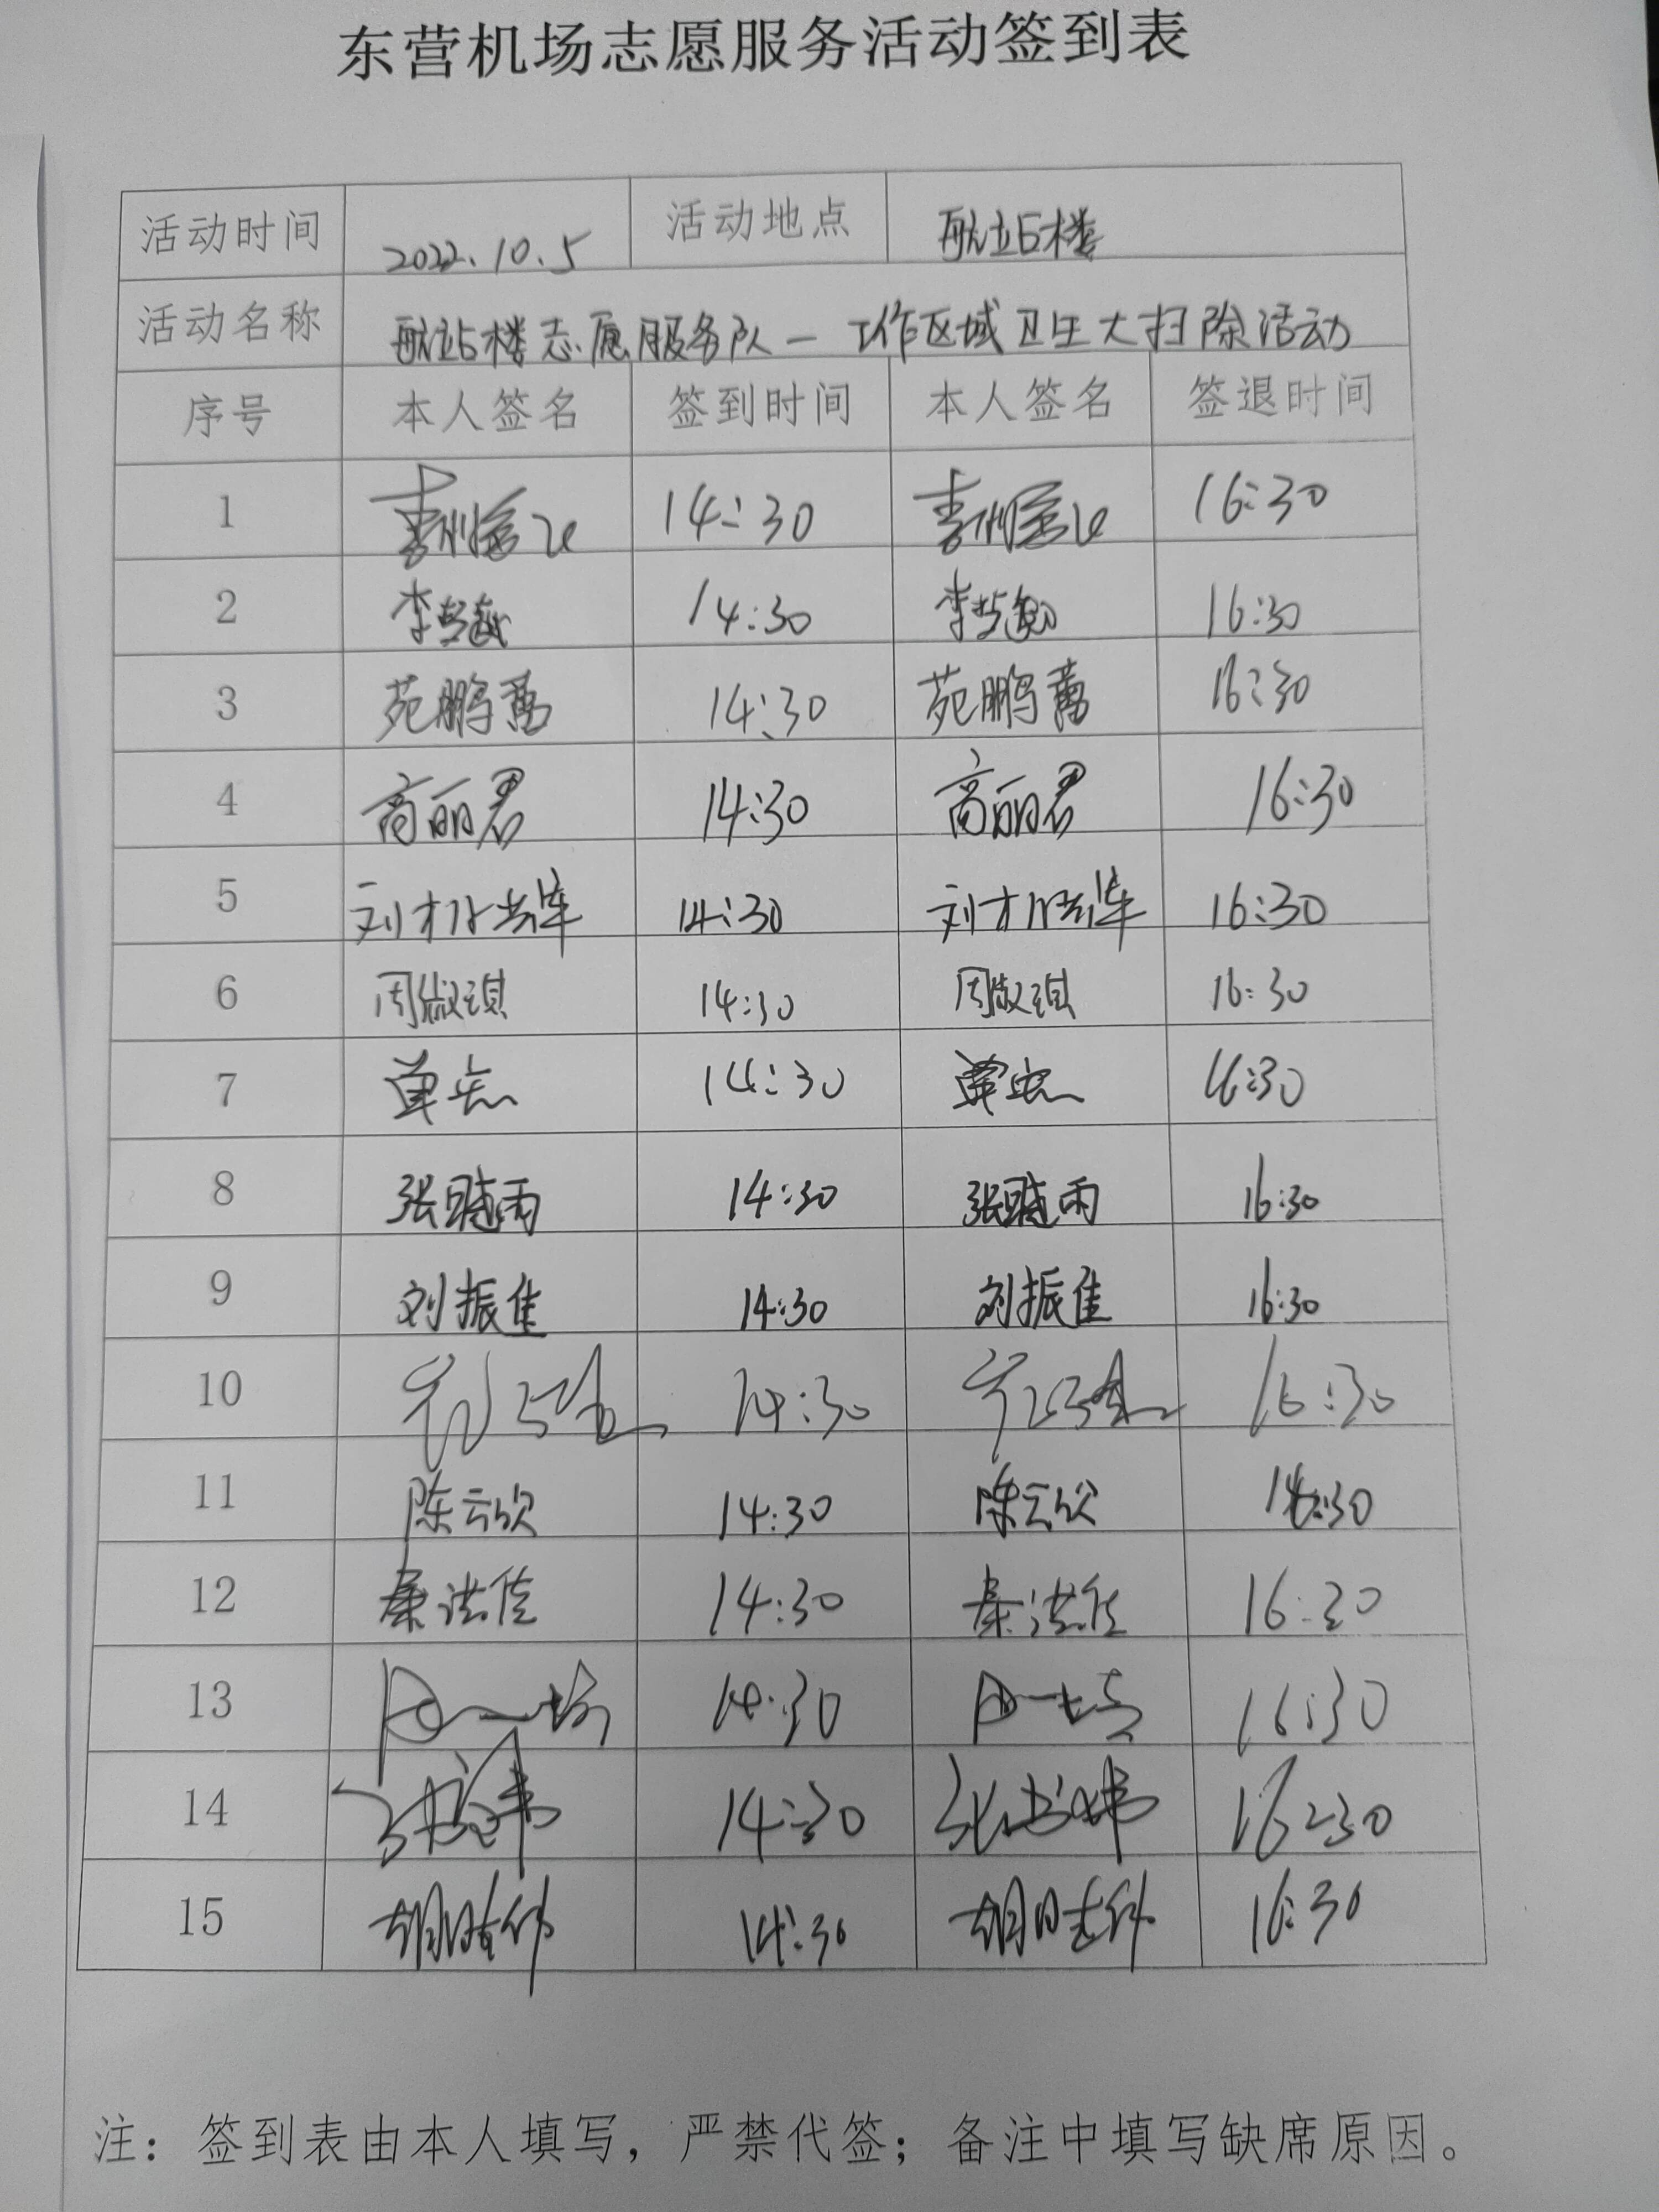 东营机场志愿服务活动签到表
活动时间 2022.10.5 活动地点 航站楼
活动名称 航站楼志愿服务队一工作区域卫生大扫除活动
序号 本人签名 签到时间 本人签名 签退时间
1 14:30 16:30
2 李 14:30 李 16:30
3 苑鹏 14:30 苑鹏 16:30
4 高丽君 14:30 高丽君 16:30
5 刘 14:30 刘 16:30
6 周 14:30 周 16:30
7 14:30 16:30
8 张晓雨 14:30 张晓雨 16:30
9 刘振佳 14:30 刘振佳 16:30
10 14:30 16:30
11 陈云欣 14:30 陈云欣 16:30
12 秦洪佳 14:30 秦洪佳 16:30
13 14:30 16:30
14 14:30 张 16:30
15 胡晓伟 14:30 胡晓伟 16:30
注：签到表由本人填写，严禁代签；备注中填写缺席原因。